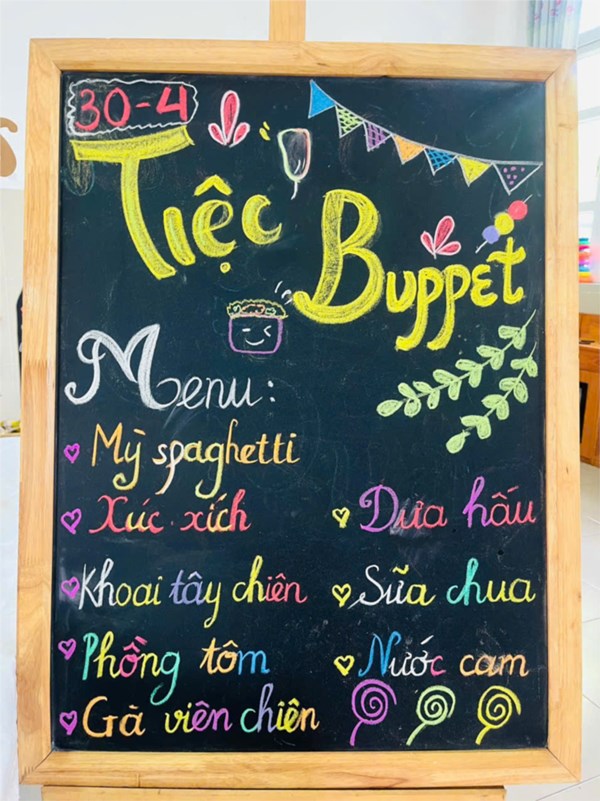 30-4
Tiệc
Buppet
Menu:
Mỳ spaghetti
Xúc xích
Khoai tây chiên
Phồng tôm
Gà viên chiên
Dưa hấu
Sữa chua
Nước cam